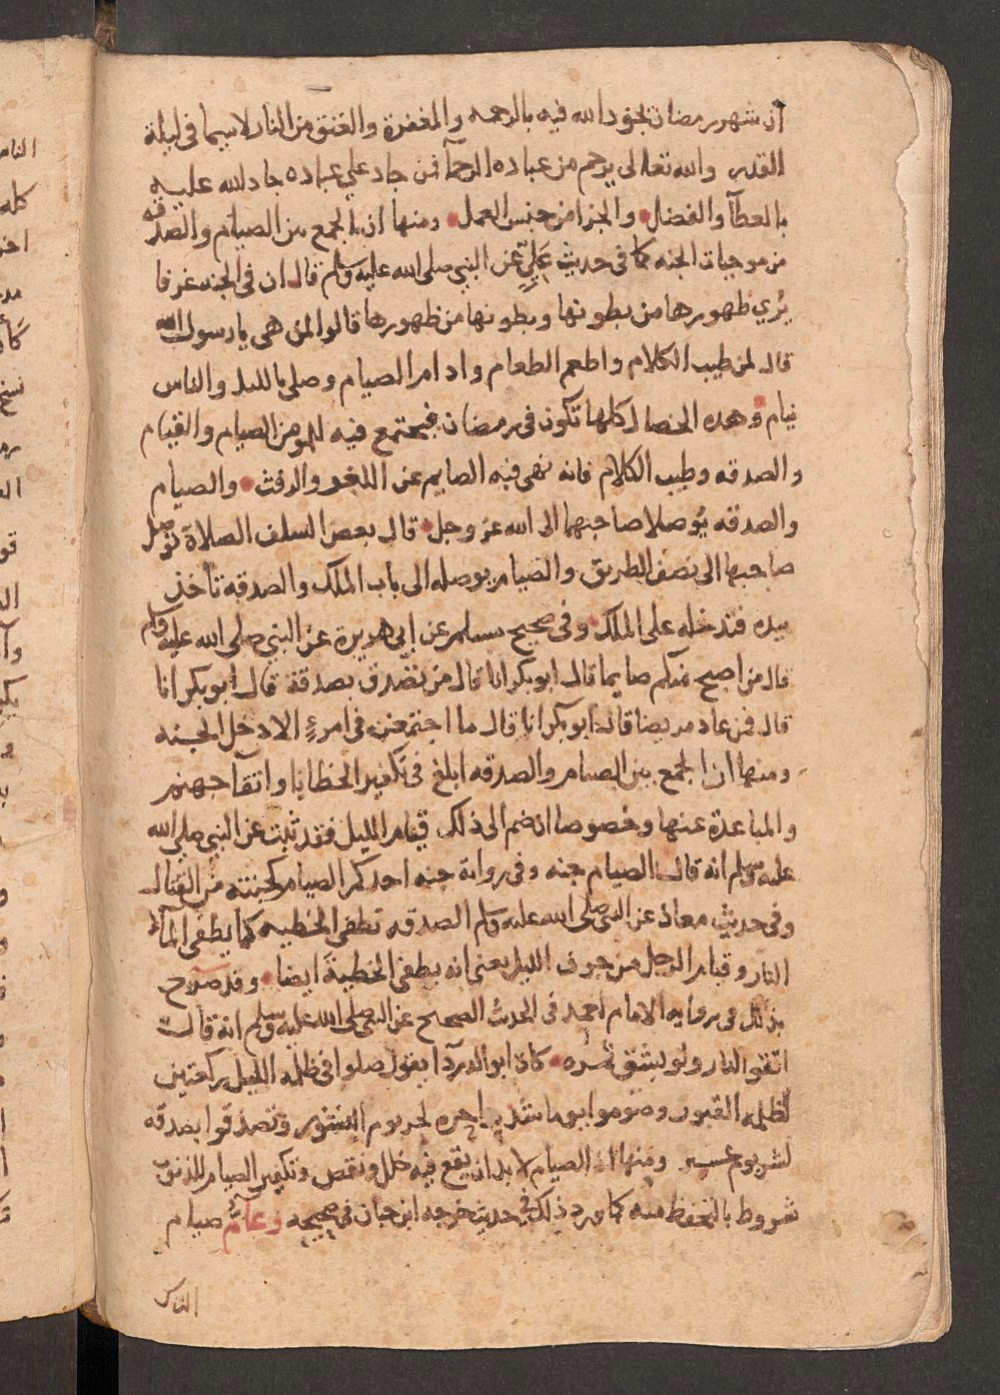 ان شهر رمضان يجود الله فيه بالرحمه والمغفرة والعتق من النار لاسيما في ليلة
القدر والله تعالى يرحم من عباده الرحمآ فمن جاد علي عباده جاد الله عليه
بالعطآ والفضل والجزا من جنس العمل ومنها ان الجمع بين الصيام والصدقه
من موجبات الجنه كما في حديث عَلِيّ عن النبي صلى الله عليه وسلم قال ان في الجنه غرفا
يُري ظهورها من بطونها وبطونها من ظهورها قالوا لمن هي يا رسول الله
قال لمن طيب الكلام واطعم الطعام وادام الصيام وصلى بالليل والناس
نيام وهذه الخصال كلها تكون في رمضان فيجتمع فيه للمومن الصيام والقيام
والصدقه وطيب الكلام فانه ينهى فيه الصايم عن اللغو والرفث والصيام
والصدقه يُوصلا صاحبهما الى الله عز وجل قال بعض السلف الصلاة توصل
صاحبها الى نصف الطريق والصيام يوصله الى باب الملك والصدقه تأخذ
بيده فتدخله على الملك وفي صحيح مسلم عن ابي هريرة عن النبي صلى الله عليه وسلم
قال من اصبح منكم صايما قال ابو بكر انا قال من تصدق بصدقة قال ابو بكر انا
قال فمن عاد مريضا قال ابو بكر انا قال ما اجتمعن في امرءٍ الا دخل الجنه
ومنها ان الجمع بين الصيام والصدقه ابلغ في تكفير الخطايا واتقآ جهنم
والمباعدة عنها وخصوصا ان ضم الى ذلك قيام الليل فقد ثبت عن النبي صلى الله
عليه وسلم انه قال الصيام جنه وفي رواية جنه احدكم الصيام كجنته من القتال
وفي حديث معاذ عن النبي صلى الله عليه وسلم الصدقه تطفي الخطيه كما يطفي المآء
النار وقيام الرجل من جوف الليل يعني انه يطفئ الخطيئة ايضا وقد صرح
بذلك في روايه الامام احمد في الحديث الصحيح عن النبي صلى الله عليه وسلم انه قال
اتقوا النار ولو بشق تمره كان ابو الدردآ يقول صلوا في ظلمه الليل ركعتين
لظلمه القبور وصوموا يوما شديد احره لحر يوم النشور وتصدقوا بصدقه
لشر يوم عسير ومنها ان الصيام لا بد ان يقع فيه خلل ونقص وتكفير الصيام للذنوب
مشروط بالتحفظ منه كما ورد ذلك في حديث خرجه ابن حبان في صحيحه وعامّة صيام
الناس